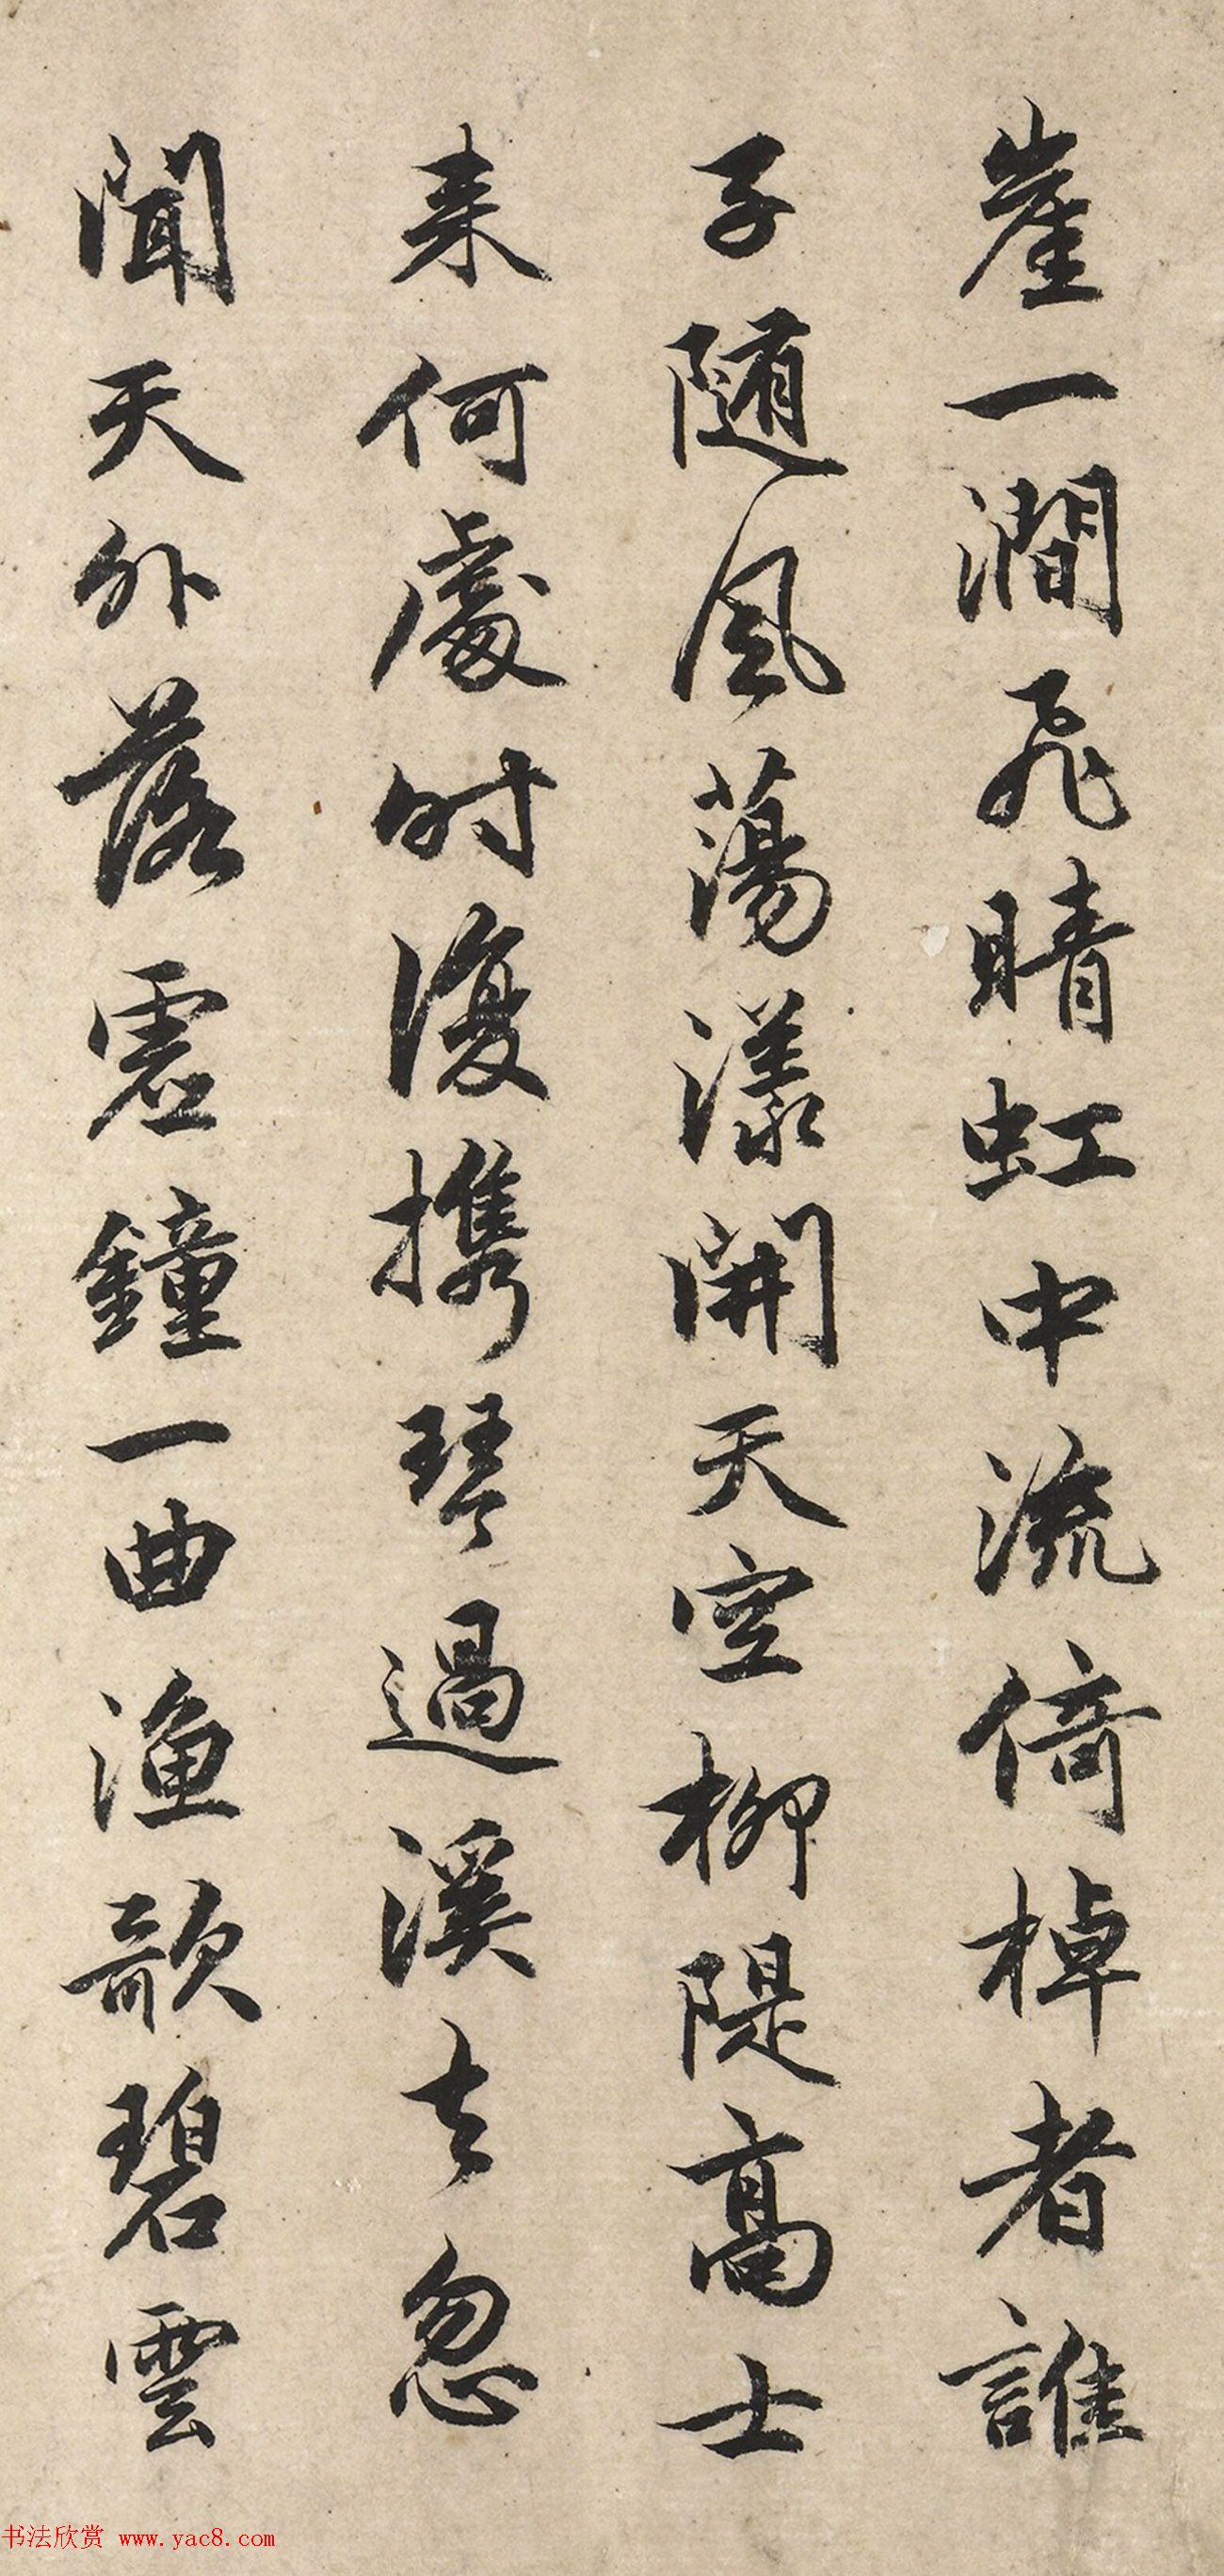 崖一澗飛晴虹中流倚棹者誰
子随風蕩漾開天空柳隄高士
来何處时復携琴過溪去忽
聞天外落雲鐘一曲渔歌碧雲
书法欣赏 www.yac8.com